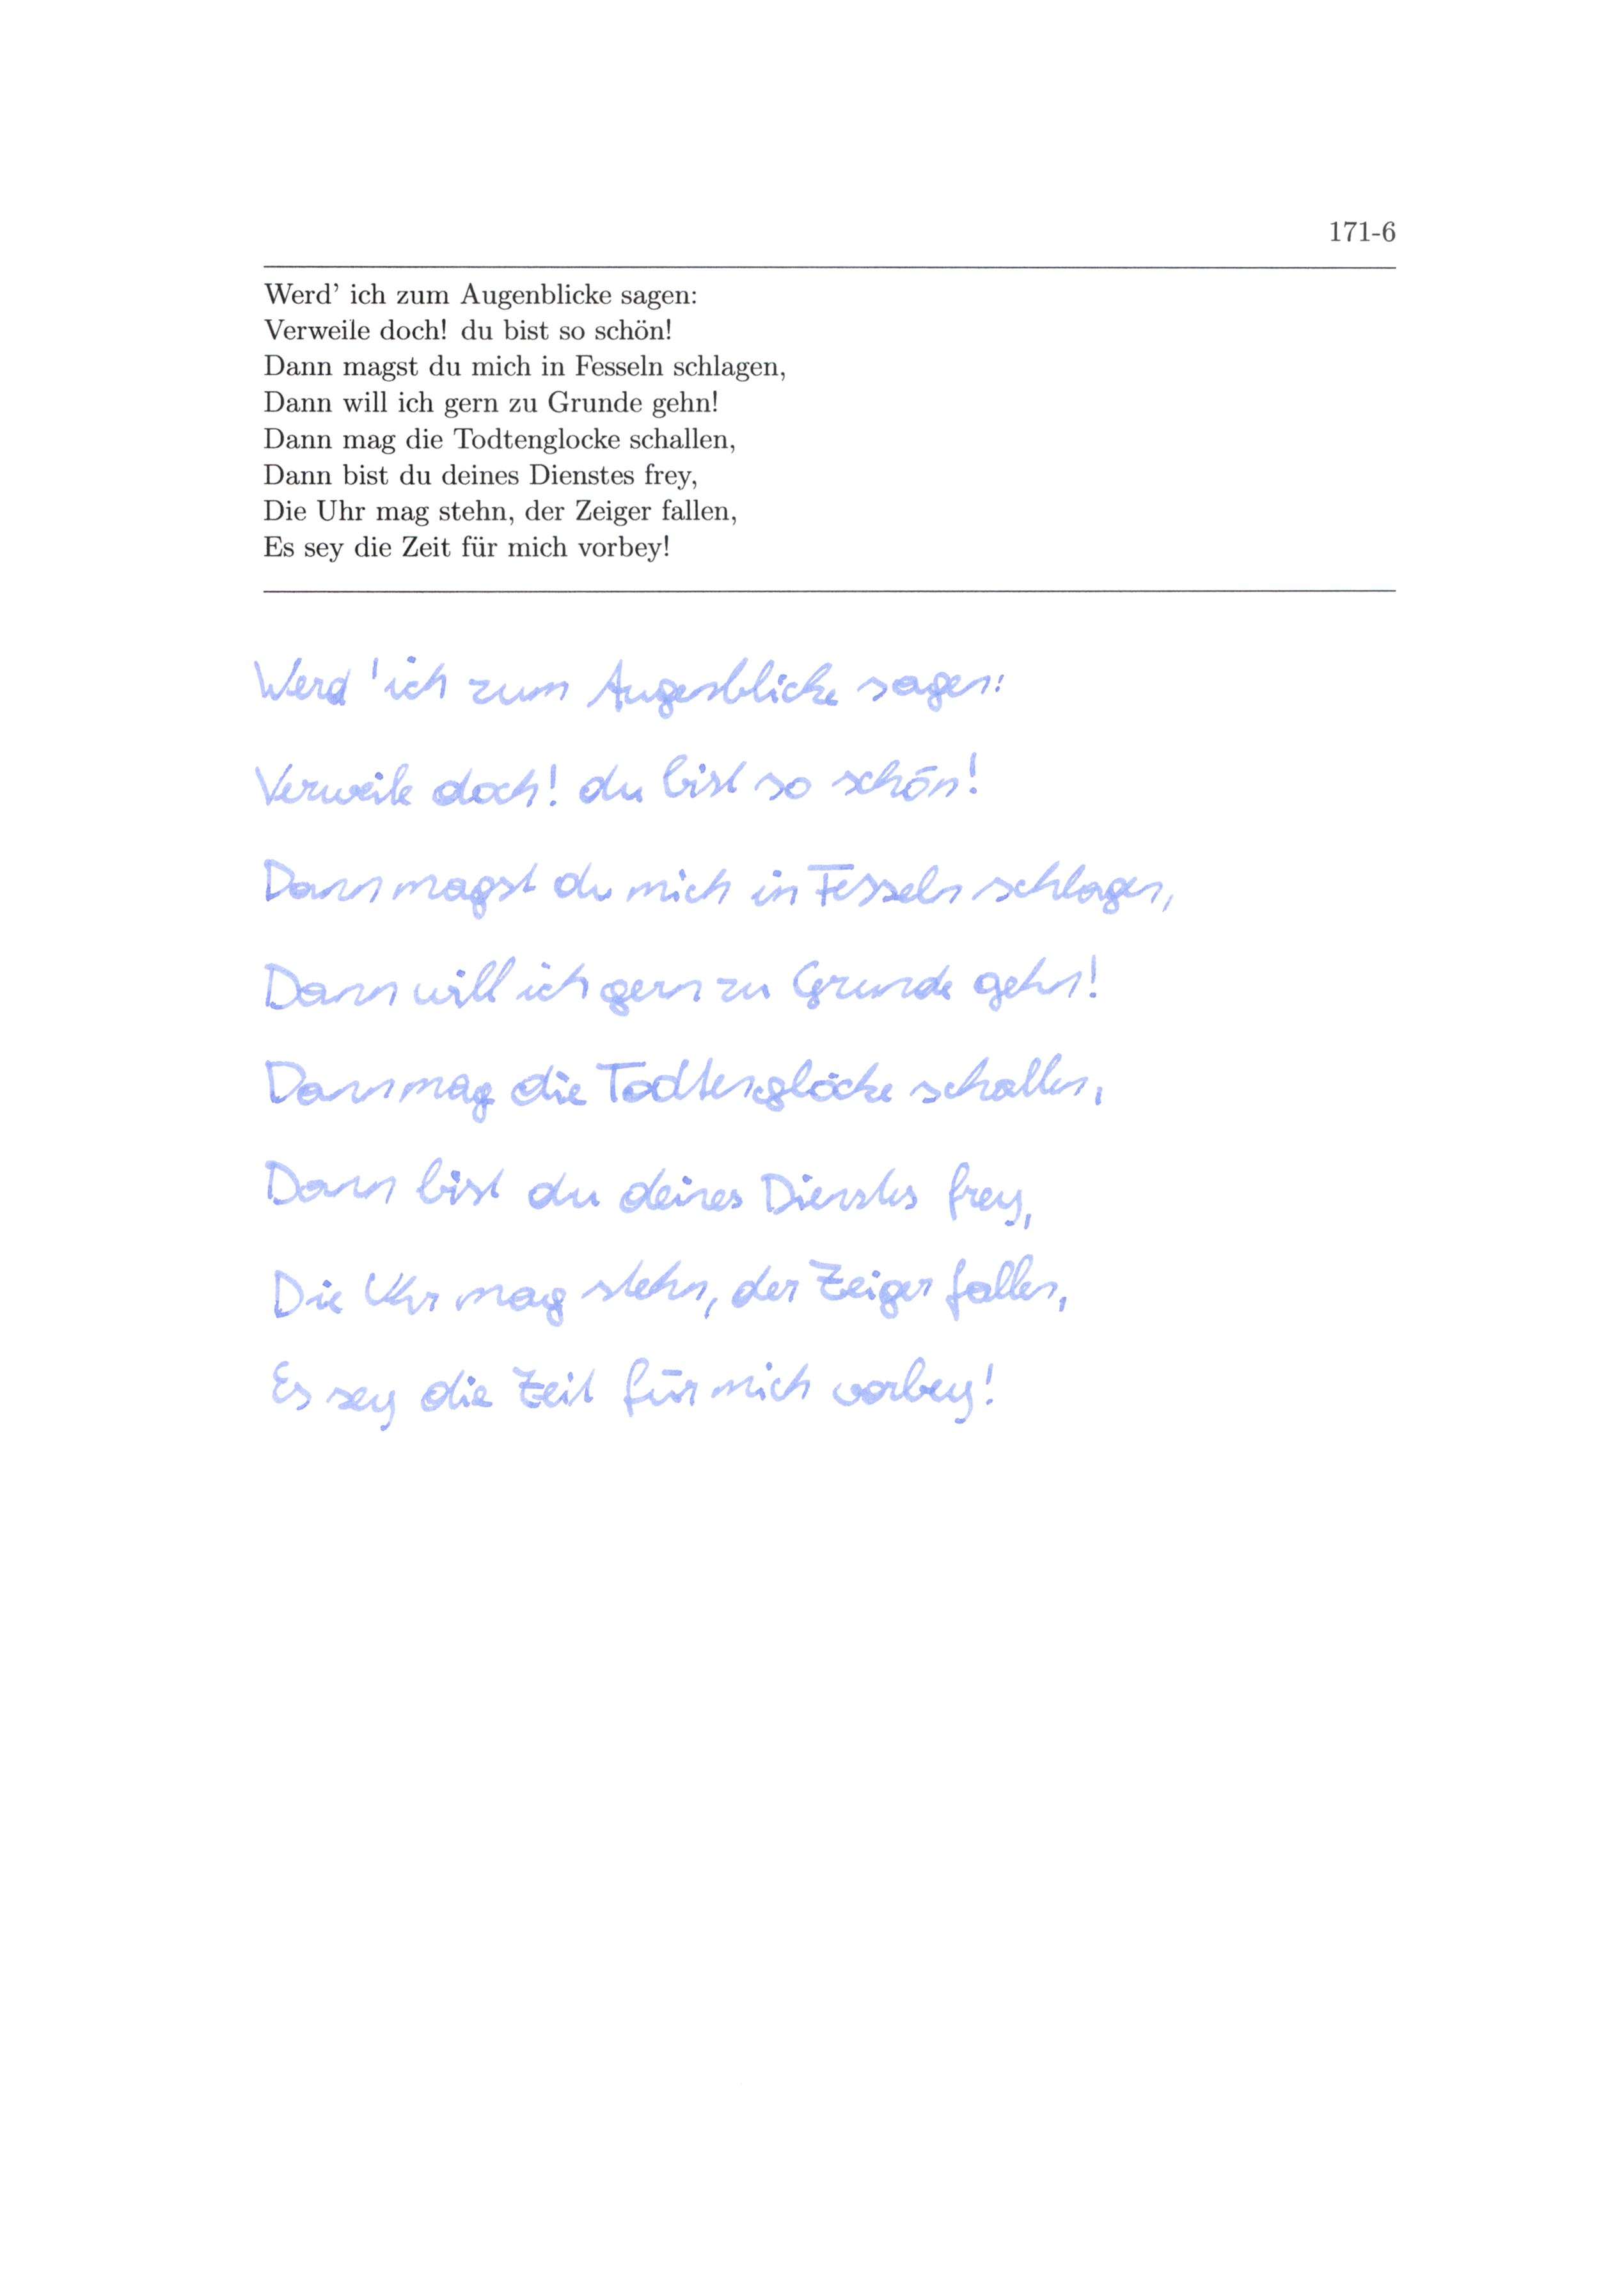 171-6
Werd' ich zum Augenblicke sagen:
Verweile doch! du bist so schön!
Dann magst du mich in Fesseln schlagen,
Dann will ich gern zu Grunde gehn!
Dann mag die Todtenglocke schallen,
Dann bist du deines Dienstes frey,
Die Uhr mag stehn, der Zeiger fallen,
Es sey die Zeit für mich vorbey!
Werd 'ich zum Augenblicke sagen:
Verweile doch! du bist so schön!
Dann magst du mich in Fesseln schlagen,
Dann will ich gern zu Grunde gehn!
Dann mag die Todtenglocke schallen,
Dann bist du deines Dienstes frey,
Die Uhr mag stehn, der Zeiger fallen,
Es sey die Zeit für mich vorbey!